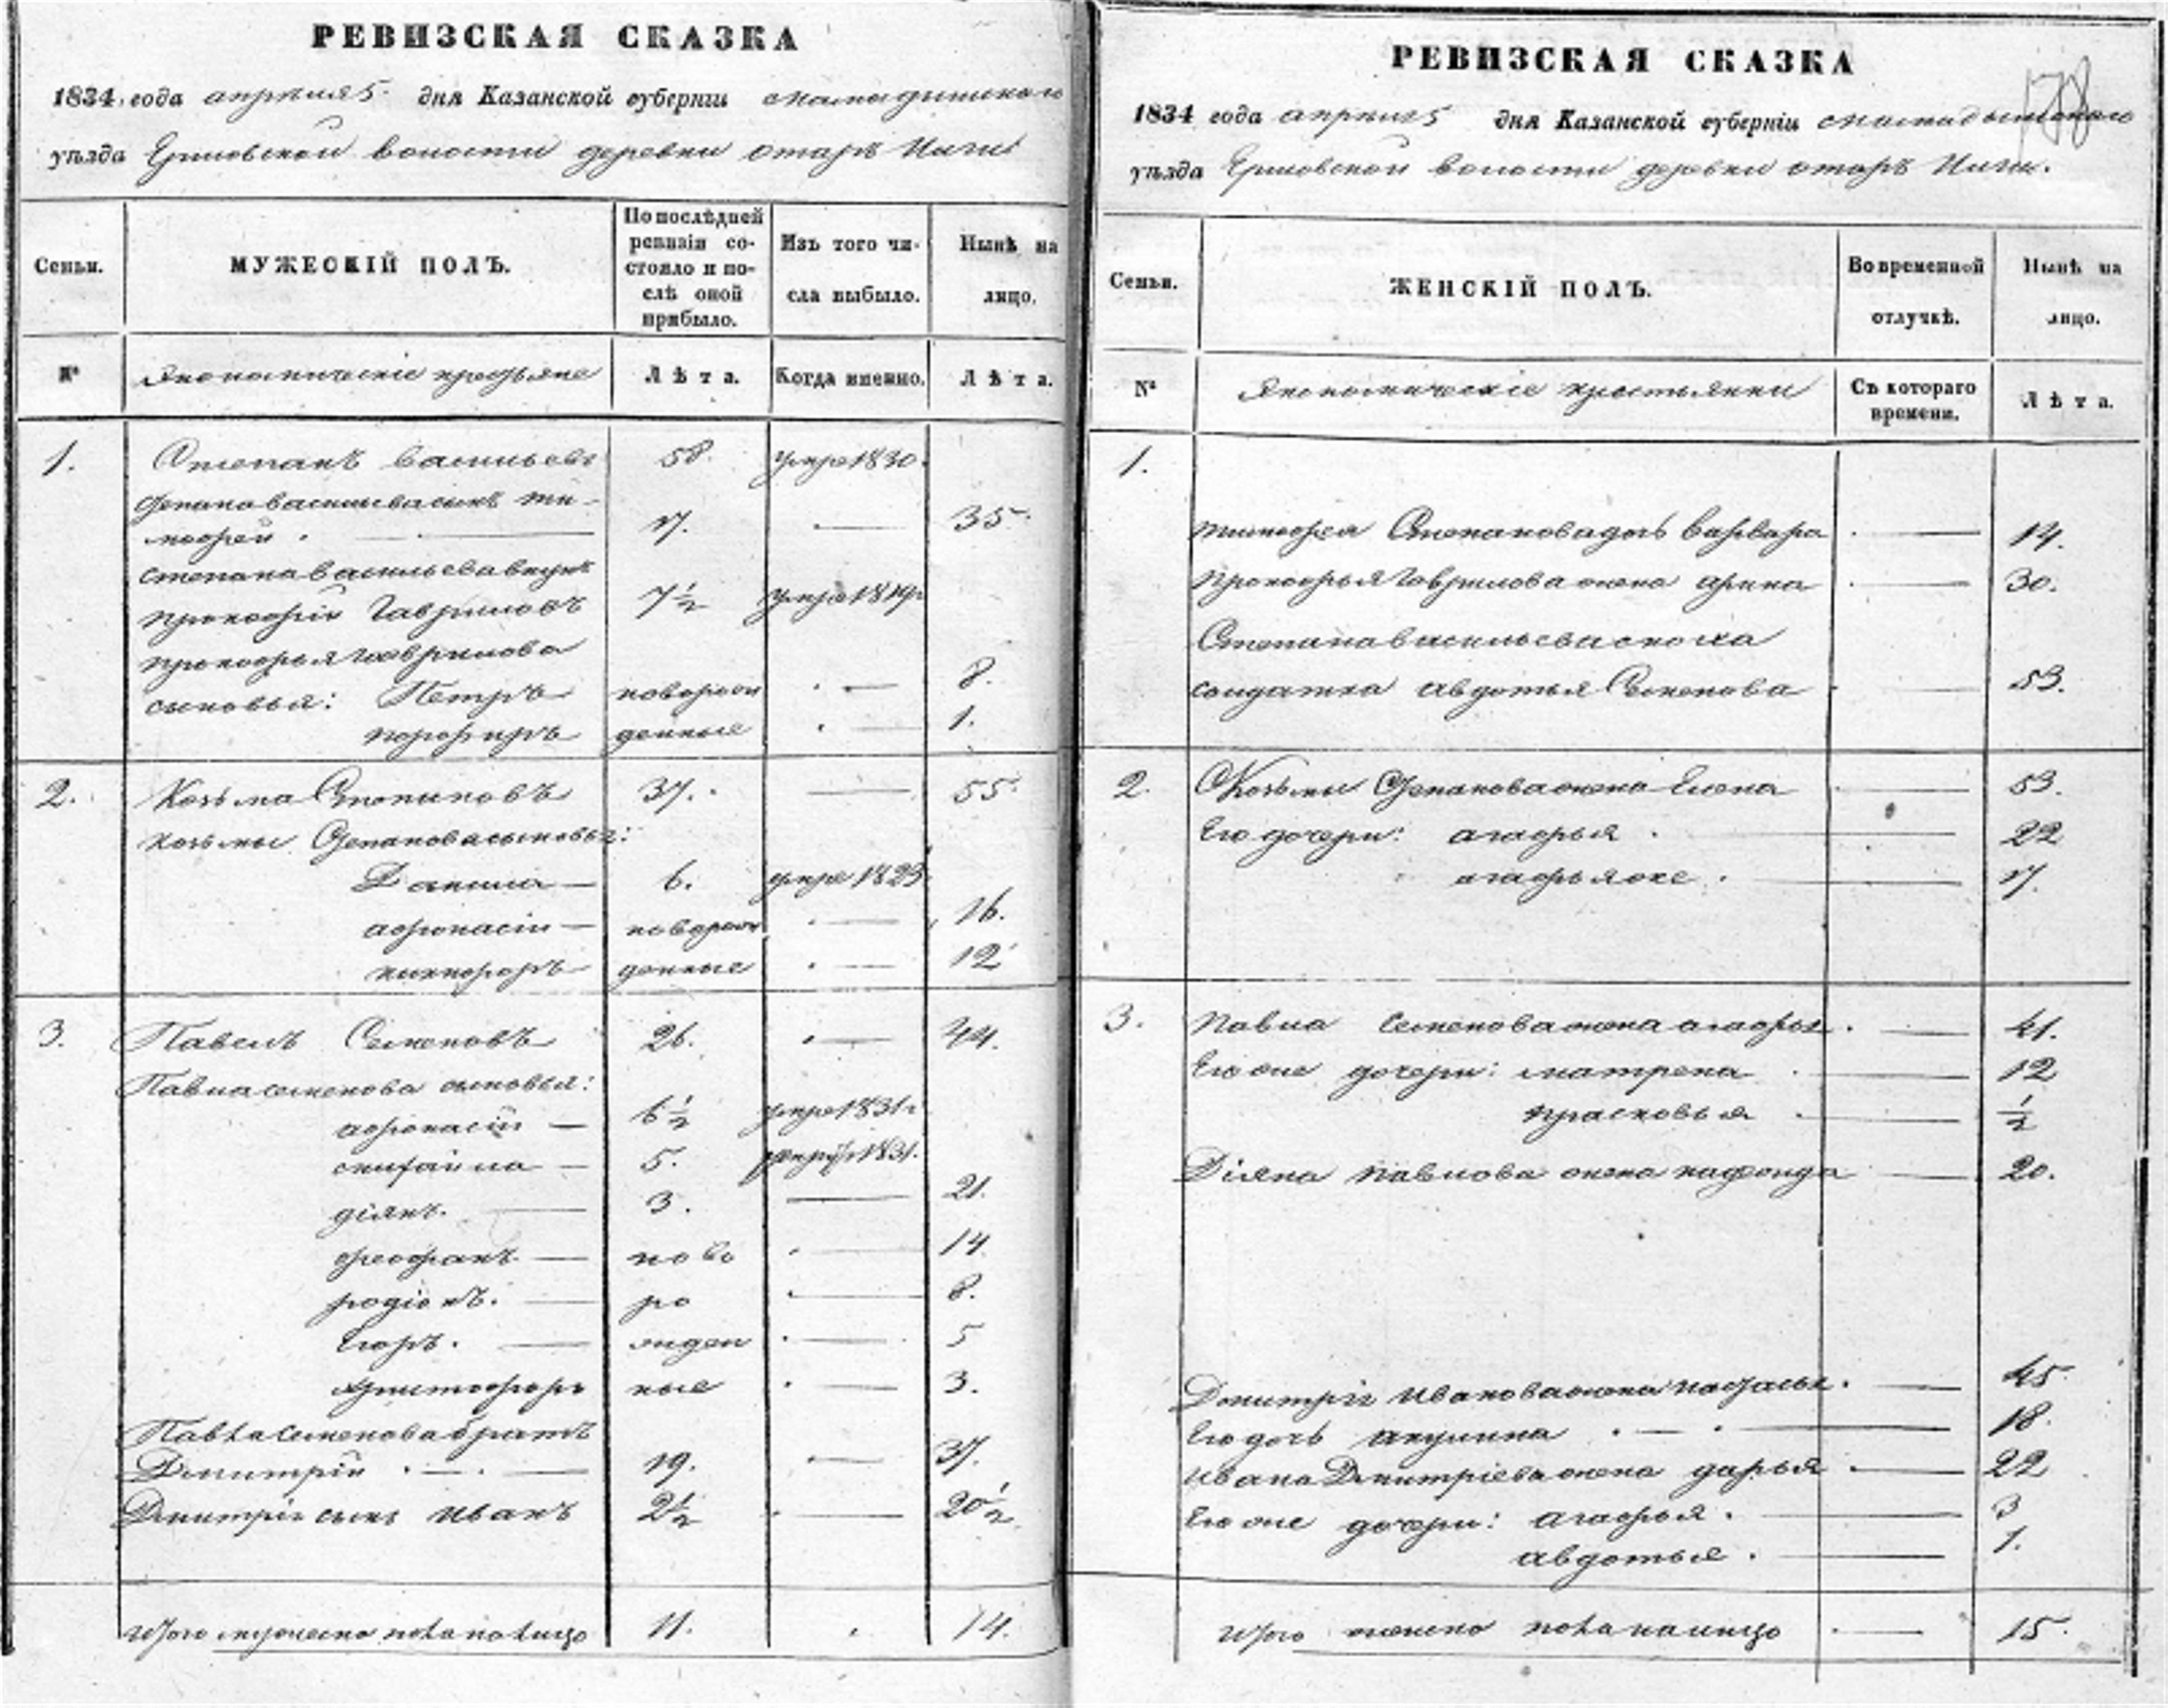 РЕВИЗСКАЯ СКАЗКА
1834 года апреля 5 дня Казанской губерніи мамадышскаго
уѣзда волости деревни отаръ
Семьи.
МУЖЕСКІЙ ПОЛЪ.
По послѣдней ревизіи со-
стояло и по-
слѣ оной
прибыло.
Изъ того чи-
сла выбыло.
Нынѣ на
лицо.
№
экономическіе крестьяне
Лѣта.
Когда именно.
Лѣта.
1. Степанъ васильевъ 58. умре 1830.
Степана васильева сынъ ти-
мофей 17. 35.
степана васильева внукъ
прокофій Гавриловъ 7½ умре
прокофья гаврилова
сыновья: Петръ новорож 8.
порфиръ денные 1.
2. Козьма Степановъ 37. 55.
козьмы Степанова сыновья:
Данила 6. умре 1823.
афонасіи новорож 16.
никифоръ денные 12
3. Павелъ Семеновъ 26. 44.
Павла семенова сыновья:
афонасіи 6½ умре 1831
5. 1831.
діянъ. 3. 21.
феофанъ ново 14
родіонъ. ро 8.
Егоръ. жден 5
христофоръ ные 3.
Павла Семенова братъ
Дмитріи 19. 37.
Дмитрія сынъ Иванъ 2½ 20½
Итого мужеска пола на лицо 11. 14.
РЕВИЗСКАЯ СКАЗКА
1834 года апреля 5 дня Казанской губерніи мамадышскаго
уѣзда волости деревни отаръ
Семьи.
ЖЕНСКІЙ ПОЛЪ.
Во временной
отлучкѣ.
Нынѣ на
лицо.
№
экономическіе крестьянки
Съ котораго
времени.
Лѣта.
1.
тимофея Степанова дочь варвара 14.
прокофья Гаврилова жена арина 30.
Степана васильева сноха
солдатка авдотья Семенова 53.
2. Козьмы Степанова жена Елена 53.
Его дочери: агафья 22
агафья же 17.
3. Павла Семенова жена агафья 41.
Его же дочери: матрена 12
прасковья ½
Діяна павлова жена 20.
Дмитрія Иванова жена наталья 45
Его дочь акулина 18.
Ивана Дмитріева жена дарья 22
Его же дочери: агафья. 3
авдотья. 1.
Итого женско пола на лицо 15.